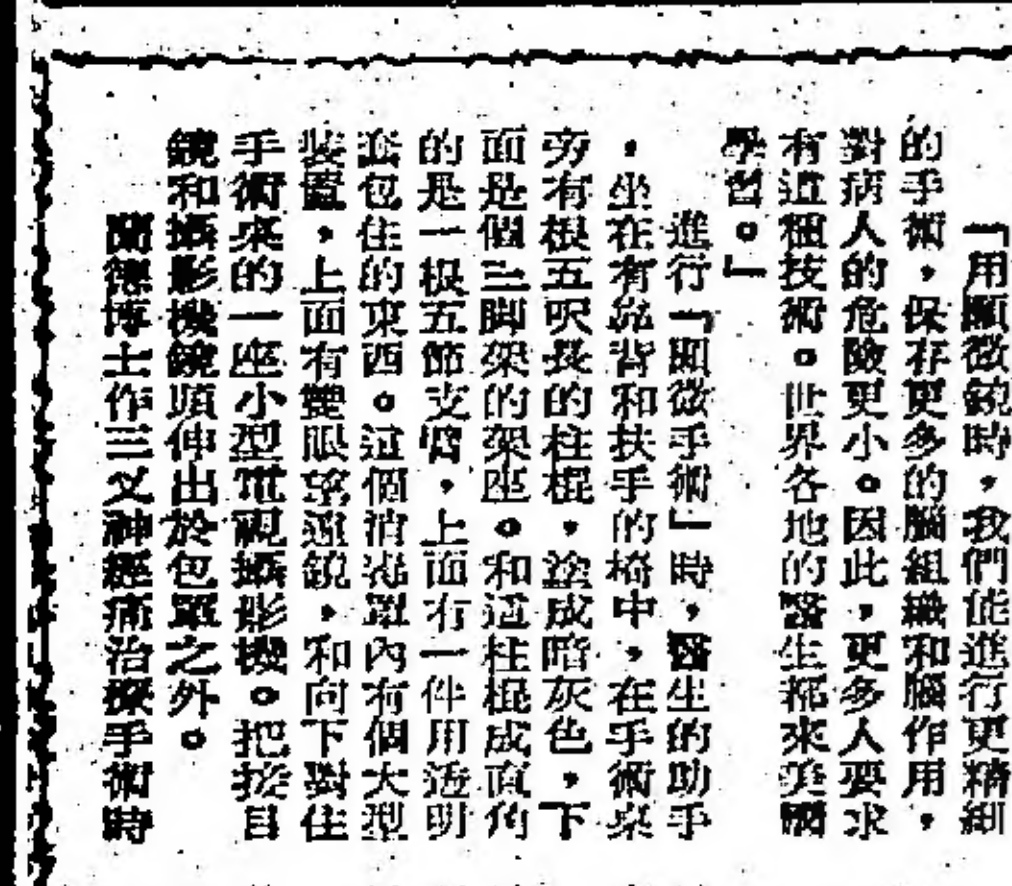 「用顯微鏡時，我們能進行更精細
的手術，保存更多的腦組織和腦作用，
對病人的危險更小。因此，更多人要求
有這種技術。世界各地的醫生都來美國
學習。」
進行「顯微手術」時，醫生的助手
，坐在有靠背和扶手的椅中，在手術桌
旁有根五呎長的柱棍，塗成暗灰色，下
面是個三脚架的架座。和這柱棍成直角
的是一根五節支臂，上面有一件用透明
套包住的東西。這個消毒罩內有個大型
裝置，上面有雙眼望遠鏡，和向下對住
手術桌的一座小型電視攝影機。把接目
鏡和攝影機鏡頭伸出於包罩之外。
蘭德博士作三叉神經痛治療手術時